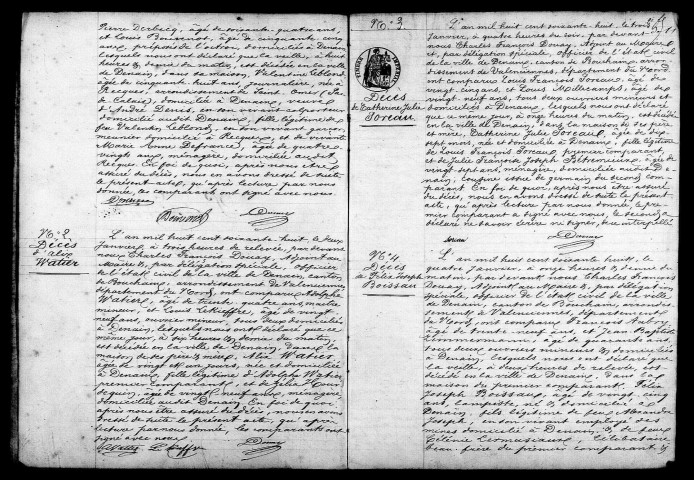 Pierre Derbecq, âgé de soixante quatre ans
et Louis Boisernot, âgé de cinquante cinq
ans, préposé de l'octroi, domiciliés à Denain,
lesquels nous ont déclaré que la veille, à huit
heures et demie du matin, est décédée en la ville
de Denain, dans sa maison, Valentine Leblond
âgée de cinquante huit ans, journalière, née à
Recques, arrondissement de Saint-Omer (Pas
de Calais), domiciliée à Denain, veuve
d'André Denis, en son vivant
domicilié audit Denain, fille légitime de
feu Valentin Leblond, en son vivant
meunier domicilié à Recques, et de vivante
Marie Anne Defrance, âgée de quatre
vingts ans, ménagère, domiciliée audit
Recques. En foi de quoi, après nous être
assuré du décès, nous en avons dressé de suite
le présent acte, qu'après lecture par nous
donnée, les comparants ont signé avec nous.
No. 2
Décès
d'Alix
Watier
L'an mil huit cent soixante huit, le deux
Janvier, à trois heures de relevée, par devant
nous Charles François Douay, Adjoint au
Maire, par délégation spéciale, officier
de l'état civil de la ville de Denain, canton
de Bouchain, arrondissement de Valenciennes,
département du Nord, ont comparu Adolphe
Watier, âgé de trente quatre ans, maître
mineur, et Louis Lekieffre, âgé de vingt
neuf ans, ouvrier mineur, tous deux domiciliés
à Denain, lesquels nous ont déclaré que ce
même jour, à six heures et demie du matin,
est décédée en la ville de Denain, dans la
maison de ses père et mère, Alix Watier,
âgée de vingt et un jours, née et domiciliée
à Denain, fille légitime d'Adolphe Watier,
premier comparant, et de Julie
âgée de vingt neuf ans, ménagère,
domiciliée audit Denain. En foi de quoi,
après nous être assuré du décès, nous en avons
dressé de suite le présent acte, qui, après
lecture par nous donnée, les comparants ont
signé avec nous.
No. 3
Décès
de Catherine Julie
Soreau
L'an mil huit cent soixante huit, le trois
Janvier, à quatre heures du soir, par devant
nous Charles François Douay, Adjoint au Maire
et, par délégation spéciale, officier de l'état civil
de la ville de Denain, canton de Bouchain, arron-
dissement de Valenciennes, département du Nord,
ont comparu Louis François Soreau, âgé de
vingt cinq ans, et Louis Mellecamps, âgé de
vingt neuf ans, tous deux ouvriers mineurs et
domiciliés à Denain, lesquels nous ont déclaré
que ce même jour, à onze heures du matin, est décédée
en la ville de Denain, dans la maison de ses père
et mère, Catherine Julie Soreau, âgée de dix
sept mois, née et domiciliée à Denain, fille légitime
de Louis François Soreau, premier comparant,
et de Julie Françoise Joseph âgée de
vingt sept ans, ménagère, domiciliée audit De-
nain, cousine issue de germain du second com-
parant. En foi de quoi, après nous être assuré
du décès, nous en avons dressé de suite le présent
acte, qu'après lecture par nous donnée, le pre-
mier comparant a signé avec nous, le second a
déclaré ne savoir écrire ni signer, de ce interpellé.
No. 4
Décès
de Félix Joseph
Boissau
L'an mil huit cent soixante huit, le
quatre Janvier, à onze heures et demie du
matin, par devant nous Charles François
Douay, Adjoint au Maire et, par délégation
spéciale, officier de l'état civil de la ville
de Denain, canton de Bouchain, arrondisse-
ment de Valenciennes, département
du Nord, ont comparu François
âgé de trente neuf ans, et Jean Baptiste
Zimmermann, âgé de quarante ans,
tous deux ouvriers mineurs et domiciliés
à Denain, lesquels nous ont déclaré que
la veille, à deux heures de relevée, est
décédé en la ville de Denain, dans la
maison du premier comparant, Félix
Joseph Boissau, âgé de vingt cinq
ans, lampiste, né et domicilié à
Denain, fils légitime de feu Alexandre
Joseph, en son vivant employé des
mines domicilié à Denain, et de feue
Célénie célibataire
beau-frère du premier comparant et